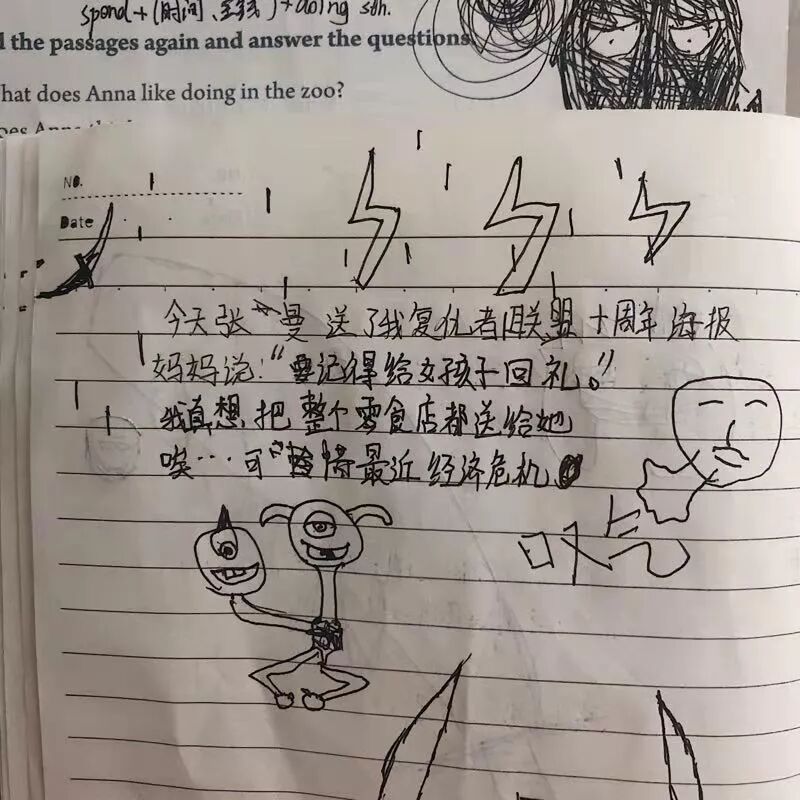 spend + (时间、金钱) + doing sth.
d the passages again and answer the questions
hat does Anna like doing in the zoo?
oes Anna
No.
Date
今天张曼送了我复仇者联盟十周年海报
妈妈说:“要记得给女孩子回礼。”
我真想把整个零食店都送给她
唉…可惜最近经济危机
叹气